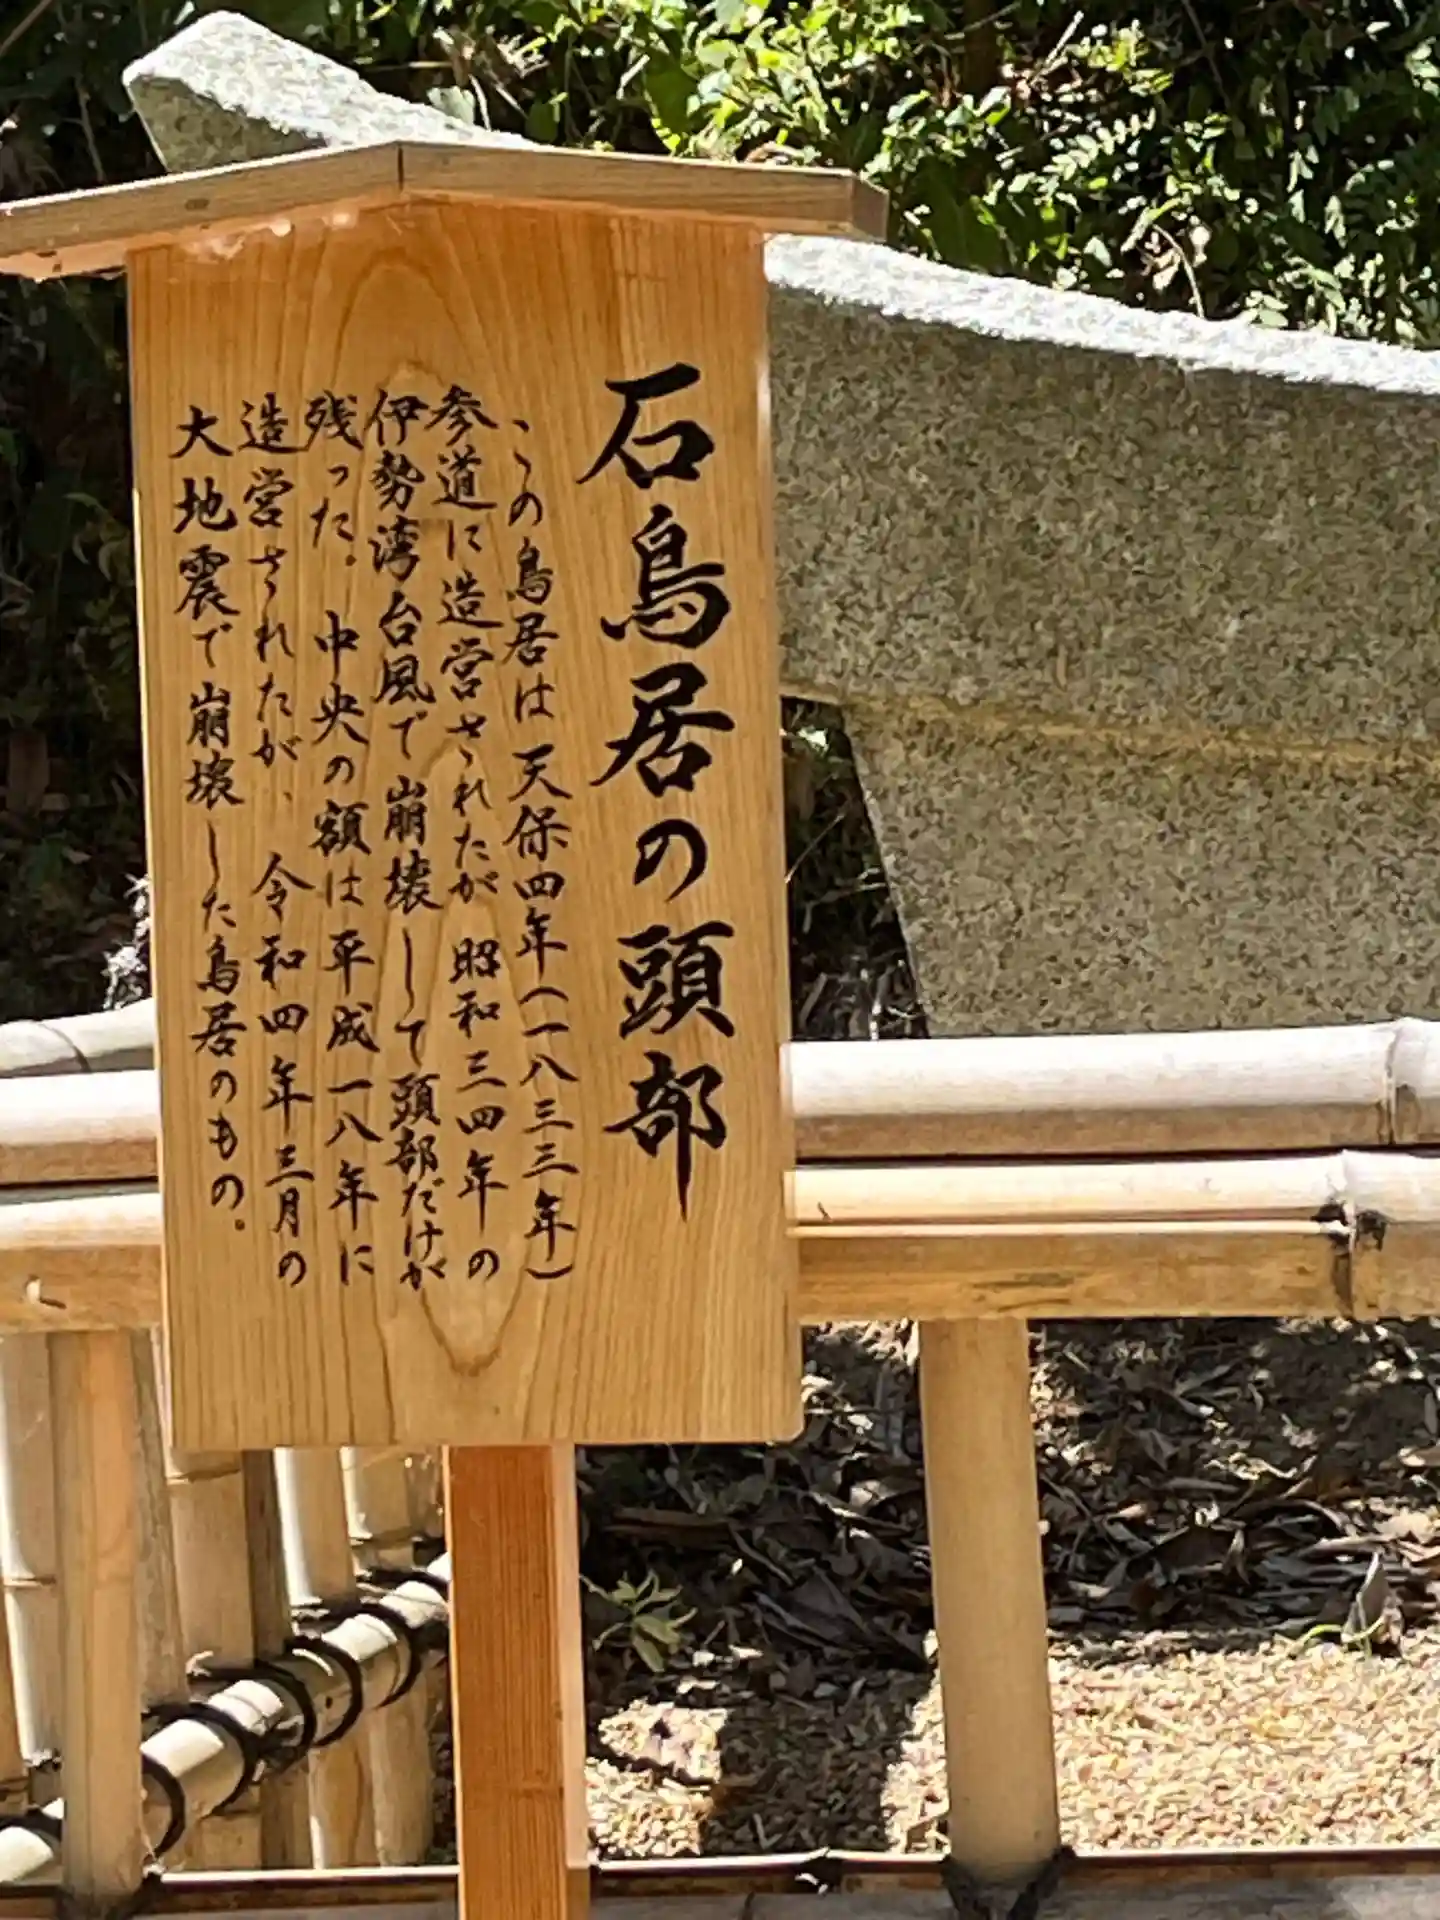 石鳥居の頭部
この鳥居は天保四年(一八三三年)
参道に造営されたが昭和三四年の
伊勢湾台風で崩壊して頭部だけが
残った。中央の額は平成一八年に
造営されたが、令和四年三月の
大地震で崩壊した鳥居のもの。